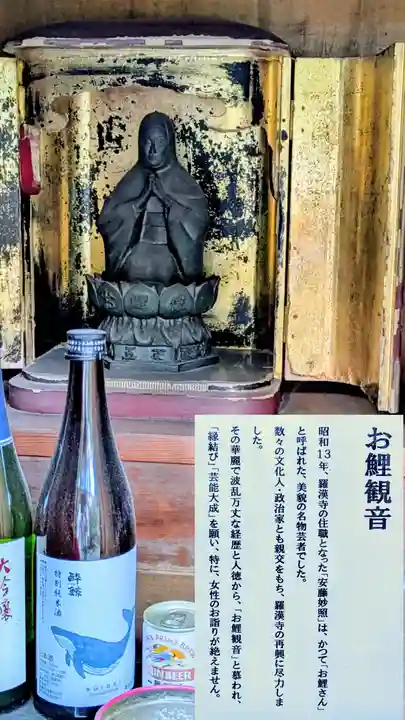 お鯉観音
昭和13年、羅漢寺の住職となった「安藤妙照」は、かつて「お鯉さん」
と呼ばれた、美貌の名物芸者でした。
数々の文化人・政治家とも親交をもち、羅漢寺の再興に尽力しま
した。
その華麗で波乱万丈な経歴と人徳から、「お鯉観音」と慕われ、
「縁結び」「芸能大成」を願い、特に、女性のお詣りが絶えません。
酔鯨
特別純米酒
大吟醸